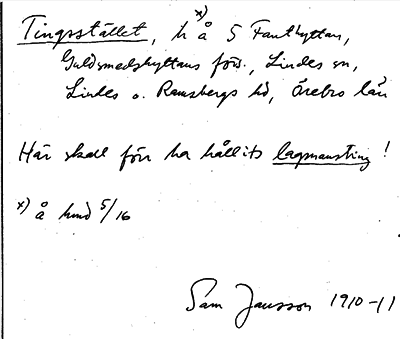 Tingsstället, h å x) 5 Fanthyttan,
Guldsmedshyttans förs., Lindes sn,
Lindes o. Ramsbergs hd, Örebro län
Här skall förr ha hållits lagmansting!
x) å hmd 5/16
Sam Jansson 1910-11